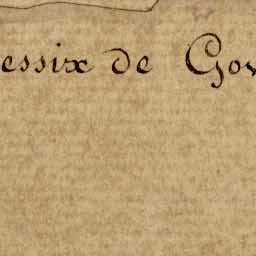 essix de Gov